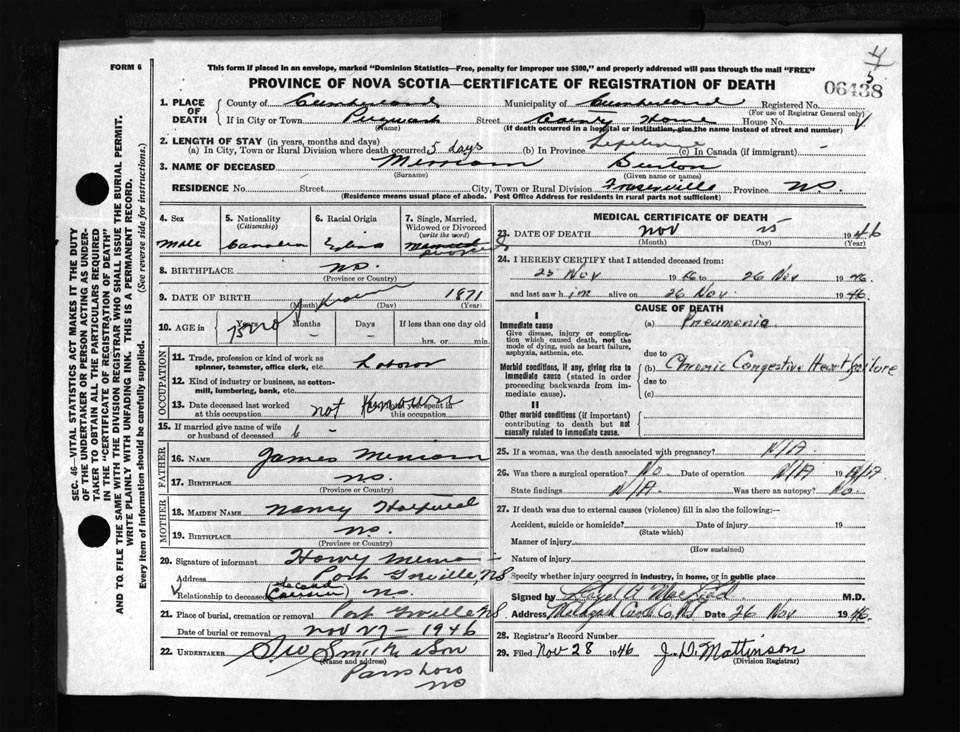 4
5
FORM 6
This form if placed in an envelope, marked "Dominion Statistics—Free, penalty for improper use $300," and properly addressed will pass through the mail "FREE"
PROVINCE OF NOVA SCOTIA—CERTIFICATE OF REGISTRATION OF DEATH
06438
1. PLACE OF DEATH
County of Cumberland Municipality of Cumberland Registered No.
(For use of Registrar General only)
If in City or Town Pugwash Street County Home House No.
(Name) (If death occurred in a hospital or institution, give the name instead of street and number)
2. LENGTH OF STAY (in years, months and days)
(a) In City, Town or Rural Division where death occurred 5 days (b) In Province Lifetime (c) In Canada (if immigrant) -
3. NAME OF DECEASED Merriam Burton
(Surname) (Given name or names)
RESIDENCE No. Street City, Town or Rural Division Fraserville Province NS.
(Residence means usual place of abode. Post Office Address for residents in rural parts not sufficient)
4. Sex
Male
5. Nationality
(Citizenship)
Canadian
6. Racial Origin
7. Single, Married, Widowed or Divorced
(write the word)
Married
Divorced
8. BIRTHPLACE NS.
(Province or Country)
9. DATE OF BIRTH Not Known 1871
(Month) (Day) (Year)
10. AGE in 75
Years Months Days If less than one day old
hrs. or min.
OCCUPATION
11. Trade, profession or kind of work as spinner, teamster, office clerk, etc. Labour
12. Kind of industry or business, as cotton-mill, lumbering, bank, etc.
13. Date deceased last worked at this occupation not Known
this occupation
15. If married give name of wife or husband of deceased
FATHER
16. NAME James Merriam
17. BIRTHPLACE NS.
(Province or Country)
MOTHER
18. MAIDEN NAME Nancy
19. BIRTHPLACE NS.
(Province or Country)
20. Signature of informant
Address Port Greville NS
Relationship to deceased second Cousin NS.
21. Place of burial, cremation or removal Port Greville NS
Date of burial or removal Nov 27 - 1946
22. UNDERTAKER Smith & Son
(Name and address)
Parrsboro
NS
MEDICAL CERTIFICATE OF DEATH
23. DATE OF DEATH Nov 25 1946
(Month) (Day) (Year)
24. I HEREBY CERTIFY that I attended deceased from:
25 Nov 1946 to 26 Nov 1946.
and last saw him alive on 26 Nov. 1946.
CAUSE OF DEATH
I
Immediate cause
Give disease, injury or complication which caused death, not the mode of dying, such as heart failure, asphyxia, asthenia, etc.
(a) Pneumonia
due to
Morbid conditions, if any, giving rise to immediate cause (stated in order proceeding backwards from immediate cause).
(b) Chronic Congestive Heart Failure
due to
(c)
II
Other morbid conditions (if important) contributing to death but not causally related to immediate cause.
25. If a woman, was the death associated with pregnancy? N/A.
26. Was there a surgical operation? No Date of operation N/A 19 N/A
State findings N/A. Was there an autopsy? No.
27. If death was due to external causes (violence) fill in also the following:—
Accident, suicide or homicide? Date of injury 19
(State which)
Manner of injury
(How sustained)
Nature of injury
Specify whether injury occurred in industry, in home, or in public place
Signed by M.D.
Address Malagash Cumb. Co. NS Date 26 Nov 1946.
28. Registrar's Record Number
29. Filed Nov 28 1946 J. D. Mattinson
(Division Registrar)
SEC. 46—VITAL STATISTICS ACT MAKES IT THE DUTY
OF THE UNDERTAKER OR PERSON ACTING AS UNDER-
TAKER TO OBTAIN ALL THE PARTICULARS REQUIRED
IN THE "CERTIFICATE OF REGISTRATION OF DEATH"
AND TO FILE THE SAME WITH THE DIVISION REGISTRAR WHO SHALL ISSUE THE BURIAL PERMIT.
WRITE PLAINLY WITH UNFADING INK. THIS IS A PERMANENT RECORD.
Every item of information should be carefully supplied. (See reverse side for instructions.)